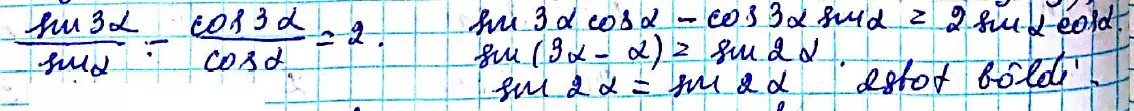 sin 3α / sin α - cos 3α / cos α = 2.
sin 3α cos α - cos 3α sin α = 2 sin α cos α.
sin (3α - α) = sin 2α.
sin 2α = sin 2α isbot bòldi.